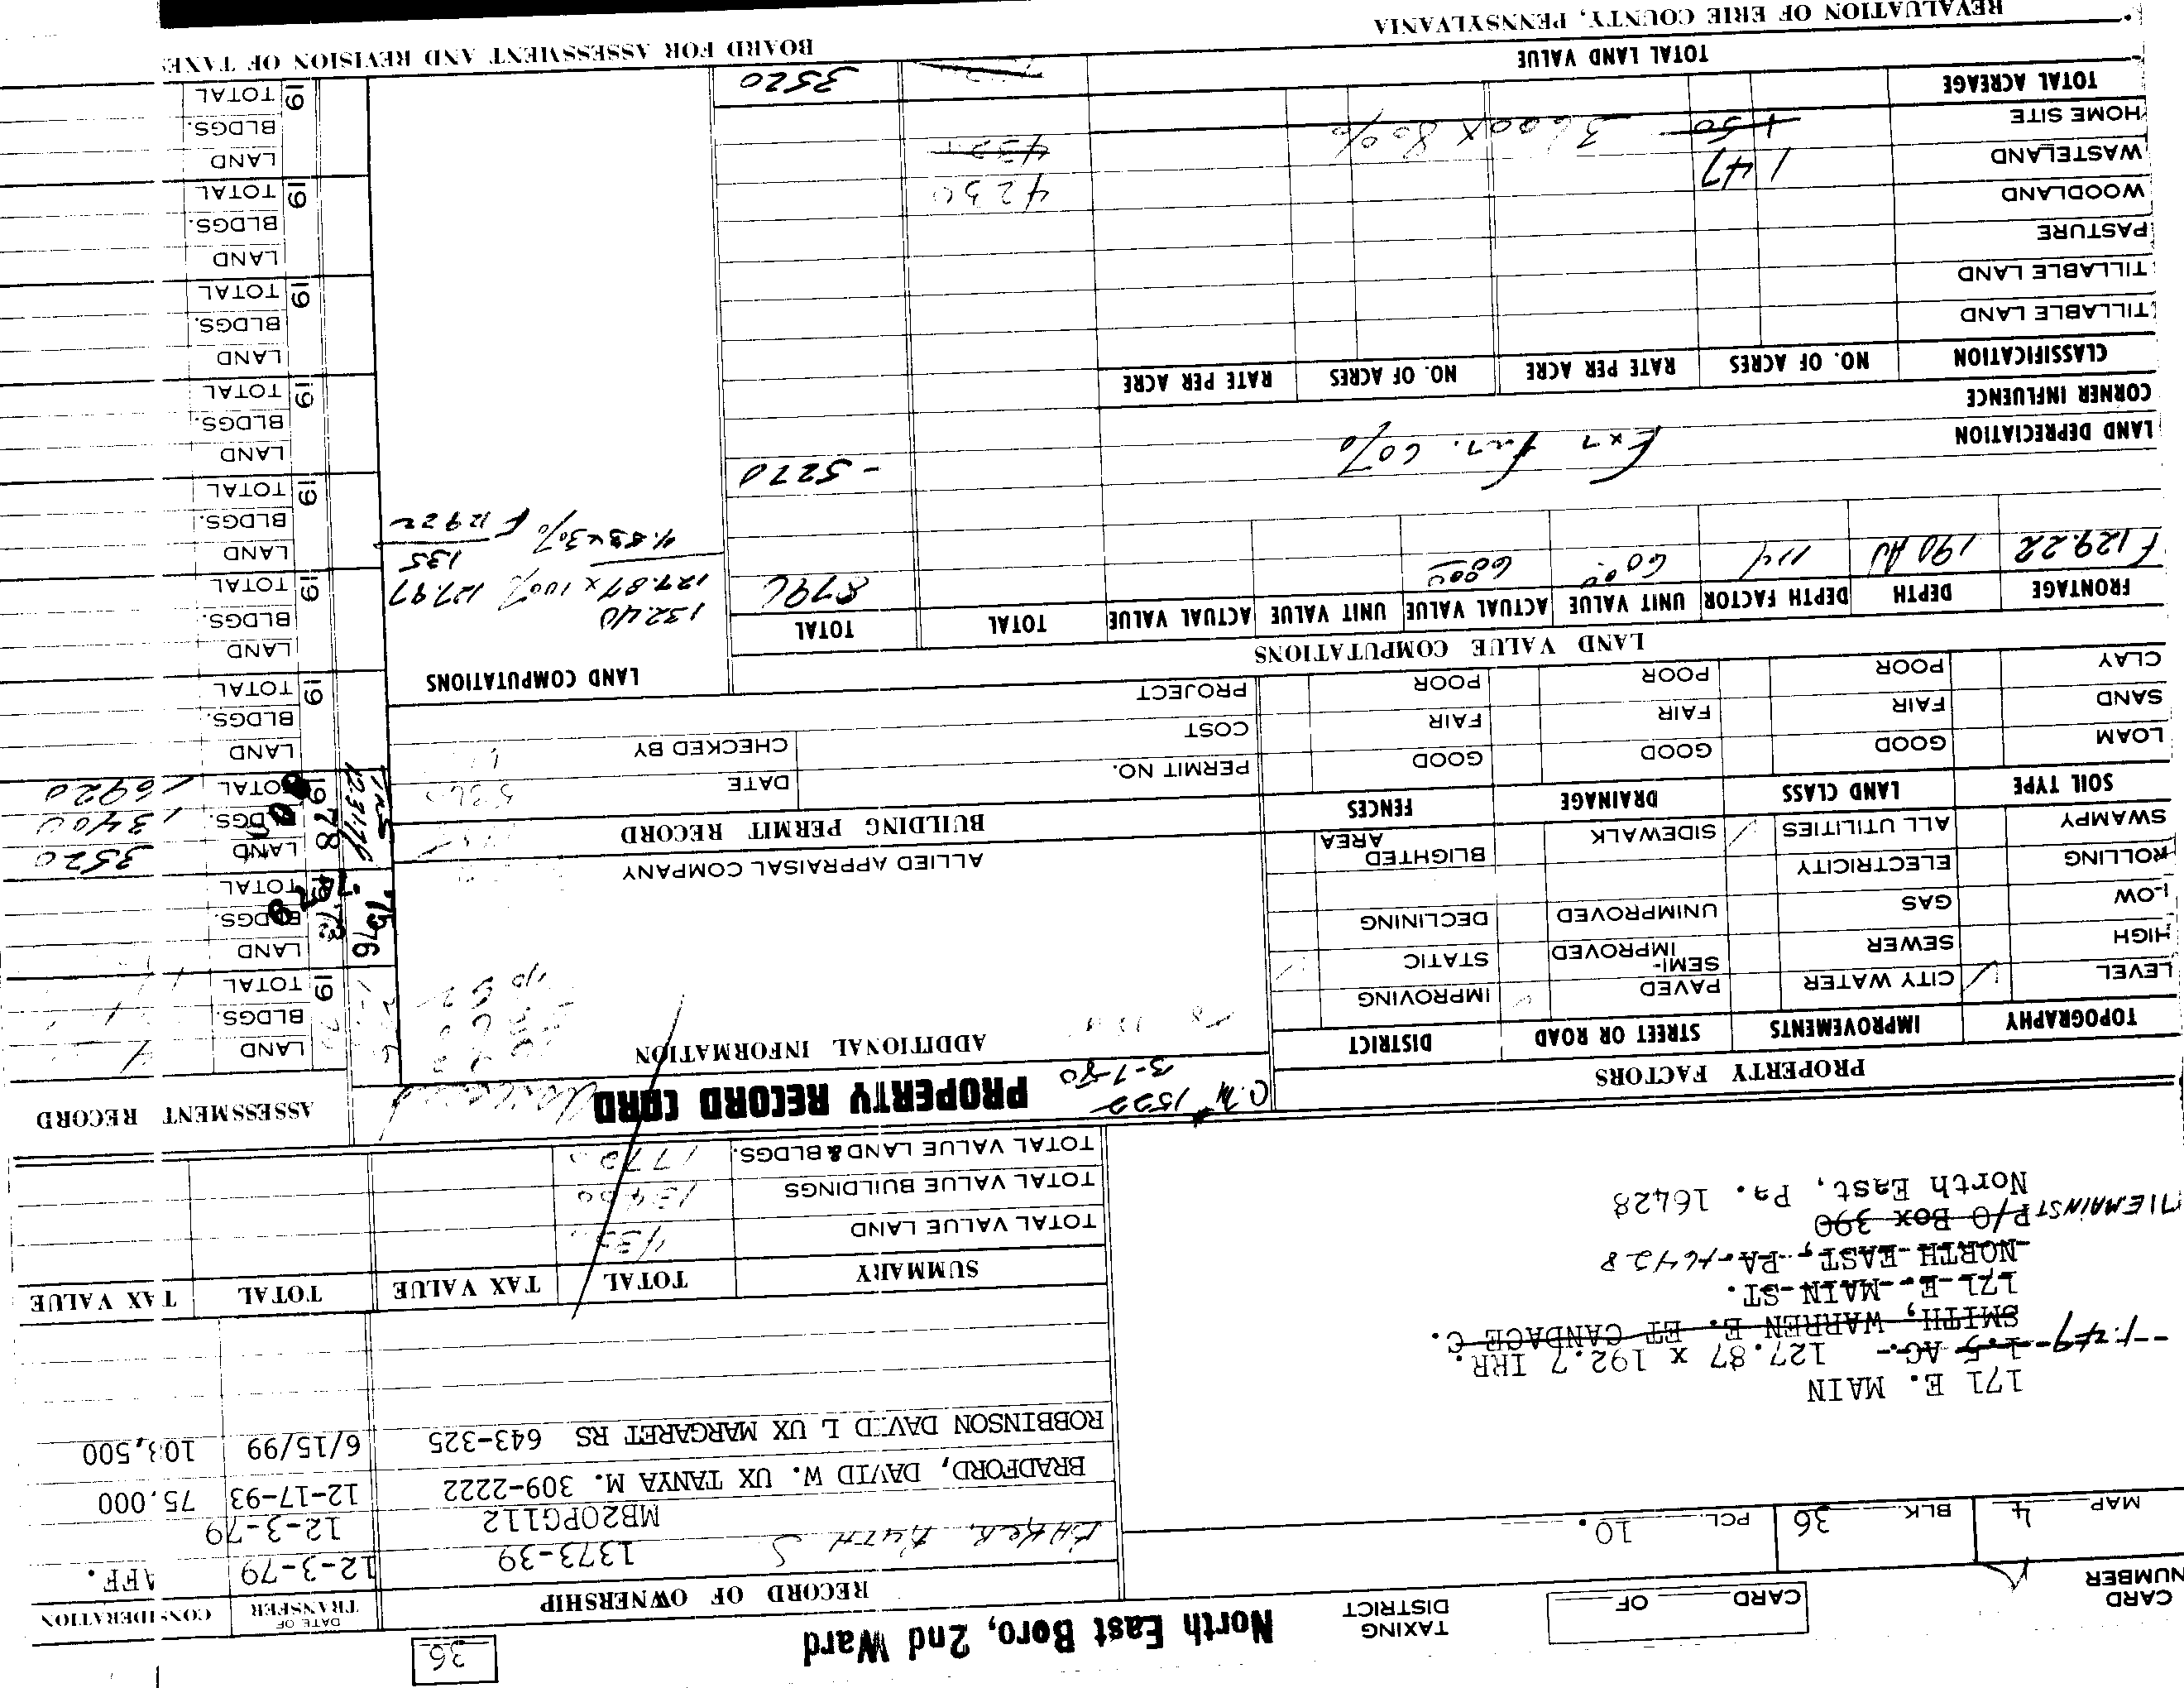 36
North East Boro, 2nd Ward
TAXING DISTRICT
CARD OF
CARD NUMBER
MAP 4 BLK. 36 PCL. 10.
RECORD OF OWNERSHIP
DATE OF TRANSFER
CONSIDERATION
RUTH S 1373-39 12-3-79 AFF.
MB20PG112 12-3-79
BRADFORD, DAVID W. UX TANYA M. 309-2222 12-17-93 75,000
ROBBINSON DAVID L UX MARGARET RS 643-325 6/15/99 103,500
171 E. MAIN
1.47 1.5 AC. 127.87 x 192.7 IRR.
SMITH, WARREN E. ET CANDACE C.
171 E. MAIN ST.
NORTH EAST, PA. 16428
171 E MAIN ST P/O Box 390
North East, Pa. 16428
SUMMARY TOTAL TAX VALUE TOTAL TAX VALUE
TOTAL VALUE LAND
TOTAL VALUE BUILDINGS 13400
TOTAL VALUE LAND & BLDGS.
PROPERTY RECORD CARD
1522
3-1-80
ASSESSMENT RECORD
PROPERTY FACTORS
TOPOGRAPHY IMPROVEMENTS STREET OR ROAD DISTRICT
LEVEL CITY WATER PAVED IMPROVING
HIGH SEWER SEMI-IMPROVED STATIC
LOW GAS UNIMPROVED DECLINING
ROLLING ELECTRICITY BLIGHTED AREA
SWAMPY ALL UTILITIES SIDEWALK
SOIL TYPE LAND CLASS DRAINAGE FENCES
LOAM GOOD GOOD GOOD
SAND FAIR FAIR FAIR
CLAY POOR POOR POOR
ADDITIONAL INFORMATION
ALLIED APPRAISAL COMPANY
BUILDING PERMIT RECORD
PERMIT NO. DATE
COST CHECKED BY
PROJECT
LAND COMPUTATIONS
132.40
127.87 x 100% 127.87
4.53 x 30% 1.35
F 129.22
LAND VALUE COMPUTATIONS
FRONTAGE DEPTH DEPTH FACTOR UNIT VALUE ACTUAL VALUE UNIT VALUE ACTUAL VALUE TOTAL TOTAL
F 129.22 190 AV 114 60.00 68.00 8790
LAND DEPRECIATION 60% -5270
CORNER INFLUENCE
CLASSIFICATION NO. OF ACRES RATE PER ACRE NO. OF ACRES RATE PER ACRE
TILLABLE LAND
TILLABLE LAND
PASTURE
WOODLAND 4230
WASTELAND 1.47
HOME SITE 1.50 3600 x 80%
TOTAL ACREAGE
TOTAL LAND VALUE 3520
REVALUATION OF ERIE COUNTY, PENNSYLVANIA
BOARD FOR ASSESSMENT AND REVISION OF TAXES
LAND
19 BLDGS.
TOTAL
LAND
1973 BLDGS.
TOTAL
75 76
1978 LAND 3520
BLDGS. 13400
TOTAL 16920
12.31.76
LAND
19 BLDGS.
TOTAL
LAND
19 BLDGS.
TOTAL
LAND
19 BLDGS.
TOTAL
LAND
19 BLDGS.
TOTAL
LAND
19 BLDGS.
TOTAL
LAND
19 BLDGS.
TOTAL
LAND
19 BLDGS.
TOTAL